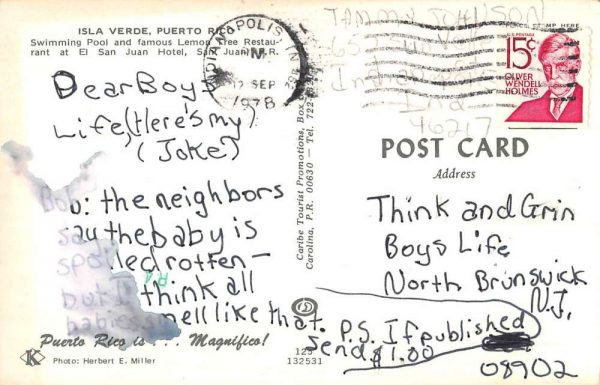 ISLA VERDE, PUERTO RICO
Swimming Pool and famous Lemon Tree Restau-
rant at El San Juan Hotel, San Juan, P.R.
Dear Boys
Life, (Here's my)
(Joke)
Bob: the neighbors
say the baby is
spoiled rotten—
but I think all
babies smell like that.
Puerto Rico is . . . Magnifico!
K
Photo: Herbert E. Miller
Caribe Tourist Promotions, Box
Carolina, P.R. 00630 — Tel. 722-
125
132531
INDIANAPOLIS, IN
PM
12 SEP
1978
TAMMY JOHNSON
65
Ind
46217
STAMP HERE
U.S. POSTAGE
15¢
OLIVER
WENDELL
HOLMES
POST CARD
Address
Think and Grin
Boys Life
North Brunswick
N.J.
08902
P.S. If published
send $1.00